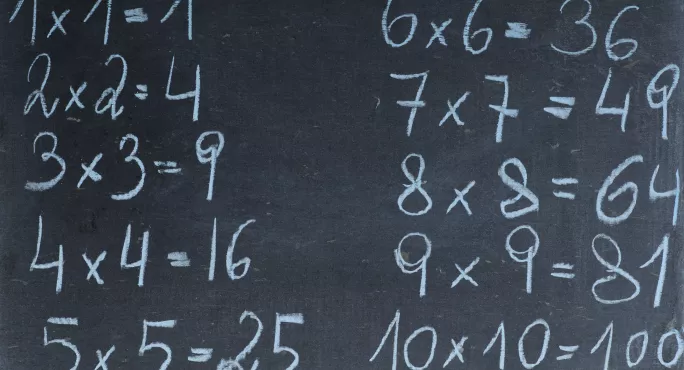 1x1=1
2x2=4
3x3=9
4x4=16
5x5=25
6x6=36
7x7=49
8x8=64
9x9=81
10x10=100